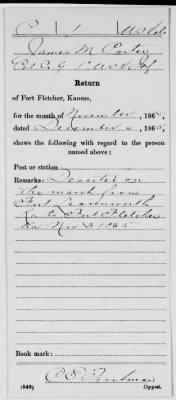 C 1 U S Vols
James M
Co. G 1" U S V Inf
Return
of Fort Fletcher, Kansas,
for the month of November, 1865,
dated December, 1865,
shows the following with regard to the person
named above:
Post or station
Remarks: Deserted on
the march from
Fort Leavenworth
Ka to Fort Fletcher
Ka Nov 3 1865
Book mark:
(546)
Copyist.